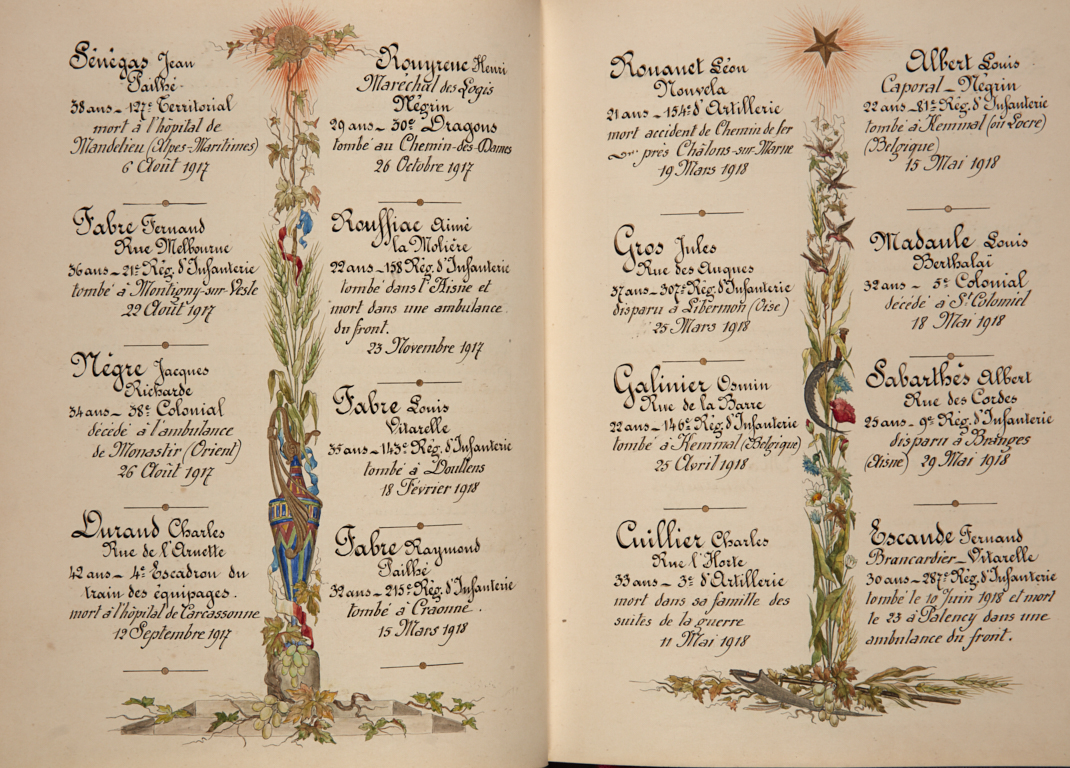 Sénégas Jean
Pailhé.
38 ans _ 127e Territorial
mort à l'hôpital de
Mandelieu (Alpes-Maritimes)
6 Août 1917
Fabre Fernand
Rue Melbourne
36 ans _ 21e Rég. d'Infanterie
tombé à Montigny-sur-Vesle
29 Août 1917
Nègre Jacques
Richarde
34 ans _ 38e Colonial
décédé à l'ambulance
de Monastir (Orient)
26 Août 1917
Durand Charles
Rue de l'Arnette
42 ans _ 4e Escadron du
train des équipages.
mort à l'hôpital de Carcassonne
12 Septembre 1917
Rouyrenc Henri
Maréchal des Logis
Négrin
29 ans _ 30e Dragons
tombé au Chemin-des-Dames
26 Octobre 1917
Rouffiac Aimé
la Molière
22 ans _ 158 Rég. d'Infanterie
tombé dans l'Aisne et
mort dans une ambulance
du front.
23 Novembre 1917
Fabre Louis
Vitarelle
35 ans _ 143e Rég. d'Infanterie
tombé à Doullens
18 Février 1918
Fabre Raymond
Pailhé
32 ans _ 215e Rég. d'Infanterie
tombé à Craonne.
15 Mars 1918
Rouanet Léon
Nouvela
21 ans _ 154e d'Artillerie
mort accident de Chemin de fer
près Châlons-sur-Marne
19 Mars 1918
Gros Jules
Rue des Auques
37 ans _ 307e Rég. d'Infanterie
disparu à Libermon (Oise)
25 Mars 1918
Galinier Osmin
Rue de la Barre
22 ans _ 146e Rég. d'Infanterie
tombé à Kemmal (Belgique)
25 Avril 1918
Cuillier Charles
Rue l'Horte
33 ans _ 3e d'Artillerie
mort dans sa famille des
suites de la guerre
11 Mai 1918
Albert Louis
Caporal _ Négrin
22 ans _ 81e Rég. d'Infanterie
tombé à Kemmal (ou Locre)
(Belgique)
15 Mai 1918
Madaule Louis
Berthalaï
32 ans _ 5e Colonial
décédé à St Colomiel
18 Mai 1918
Sabarthès Albert
Rue des Cordes
25 ans _ 9e Rég. d'Infanterie
disparu à Branges
(Aisne) 29 Mai 1918
Escande Fernand
Brancardier _ Vitarelle
30 ans _ 287e Rég. d'Infanterie
tombé le 10 Juin 1918 et mort
le 23 à Palency dans une
ambulance du front.